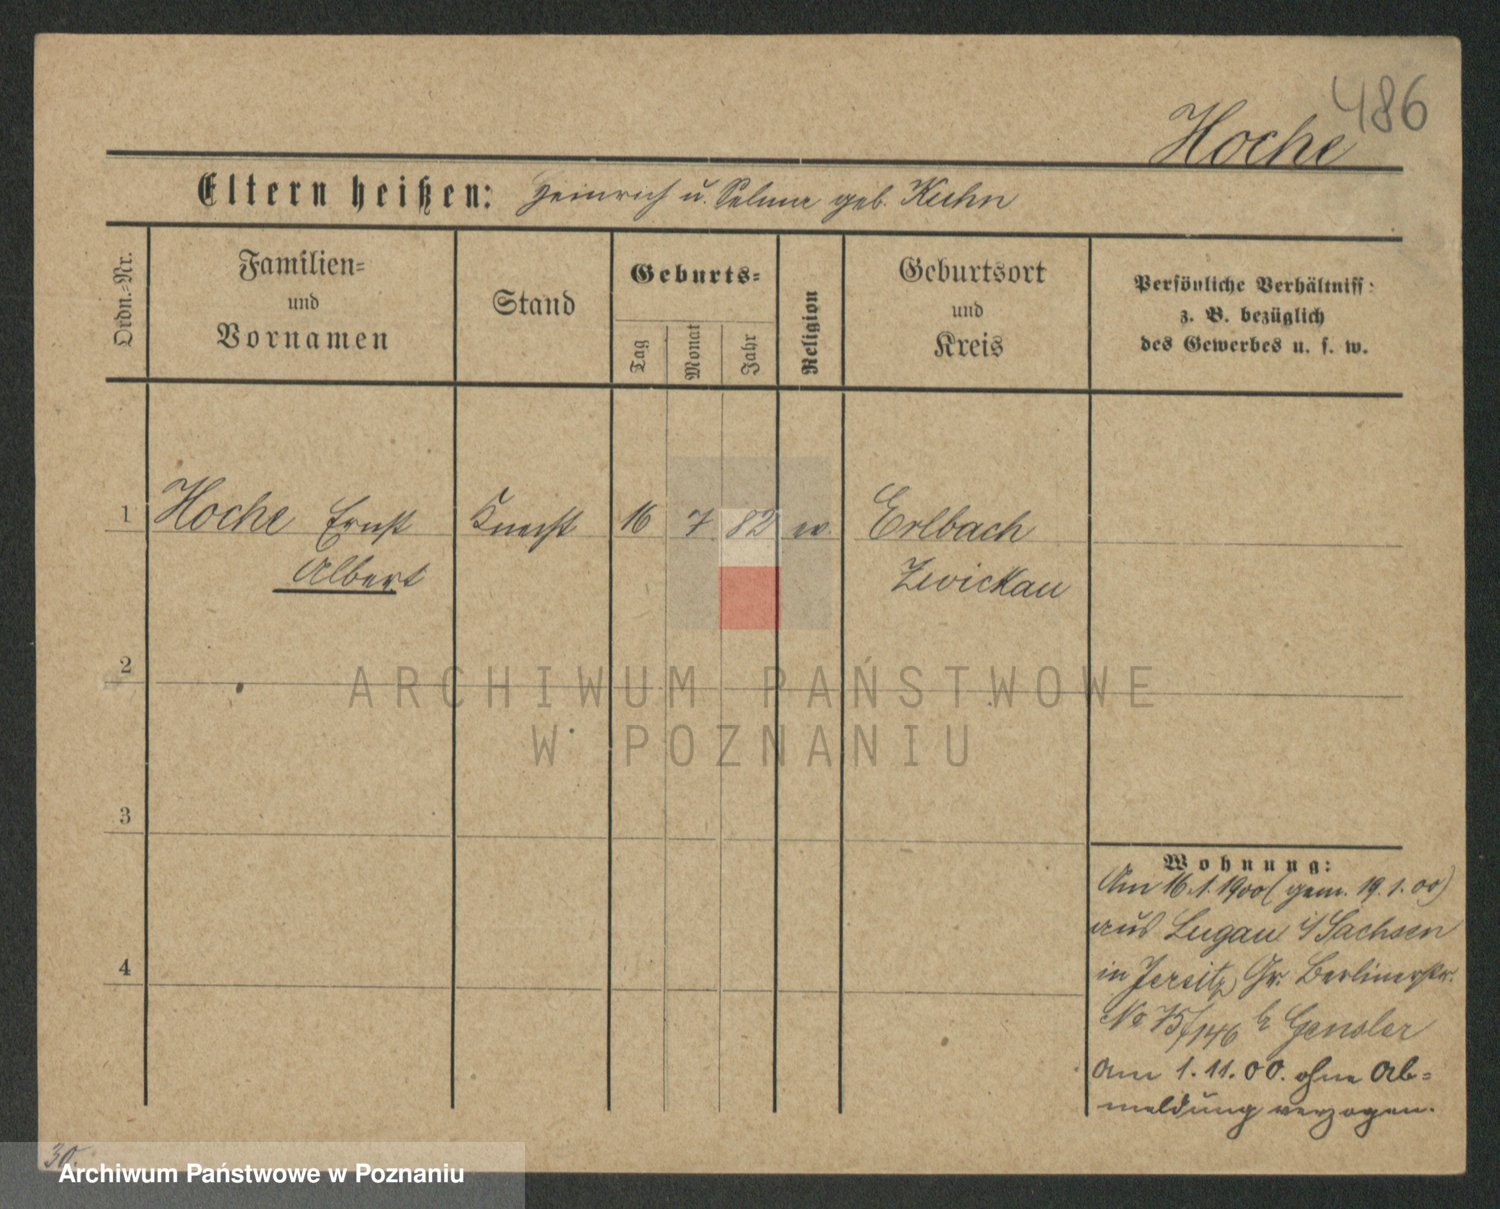 486
Hoche
Eltern heißen: Heinrich u. Selma geb. Kuhn
Ordn.-Nr.
Familien-
und
Vornamen
Stand
Geburts-
Tag
Monat
Jahr
Religion
Geburtsort
und
Kreis
Persönliche Verhältniss:
z. B. bezüglich
des Gewerbes u. s. w.
1 Hoche Ernst Knecht 16 7 82 ev. Erlbach
Albert Zwickau
2
ARCHIWUM PAŃSTWOWE
W POZNANIU
3
4
Wohnung:
Am 16.1.1900 (gem. 19.1.00)
aus Lugau i/Sachsen
in Jersitz, Gr. Berlinerstr.
No 75/146 b Gensler
Am 1.11.00. ohne Ab=
meldung verzogen.
30.
Archiwum Państwowe w Poznaniu